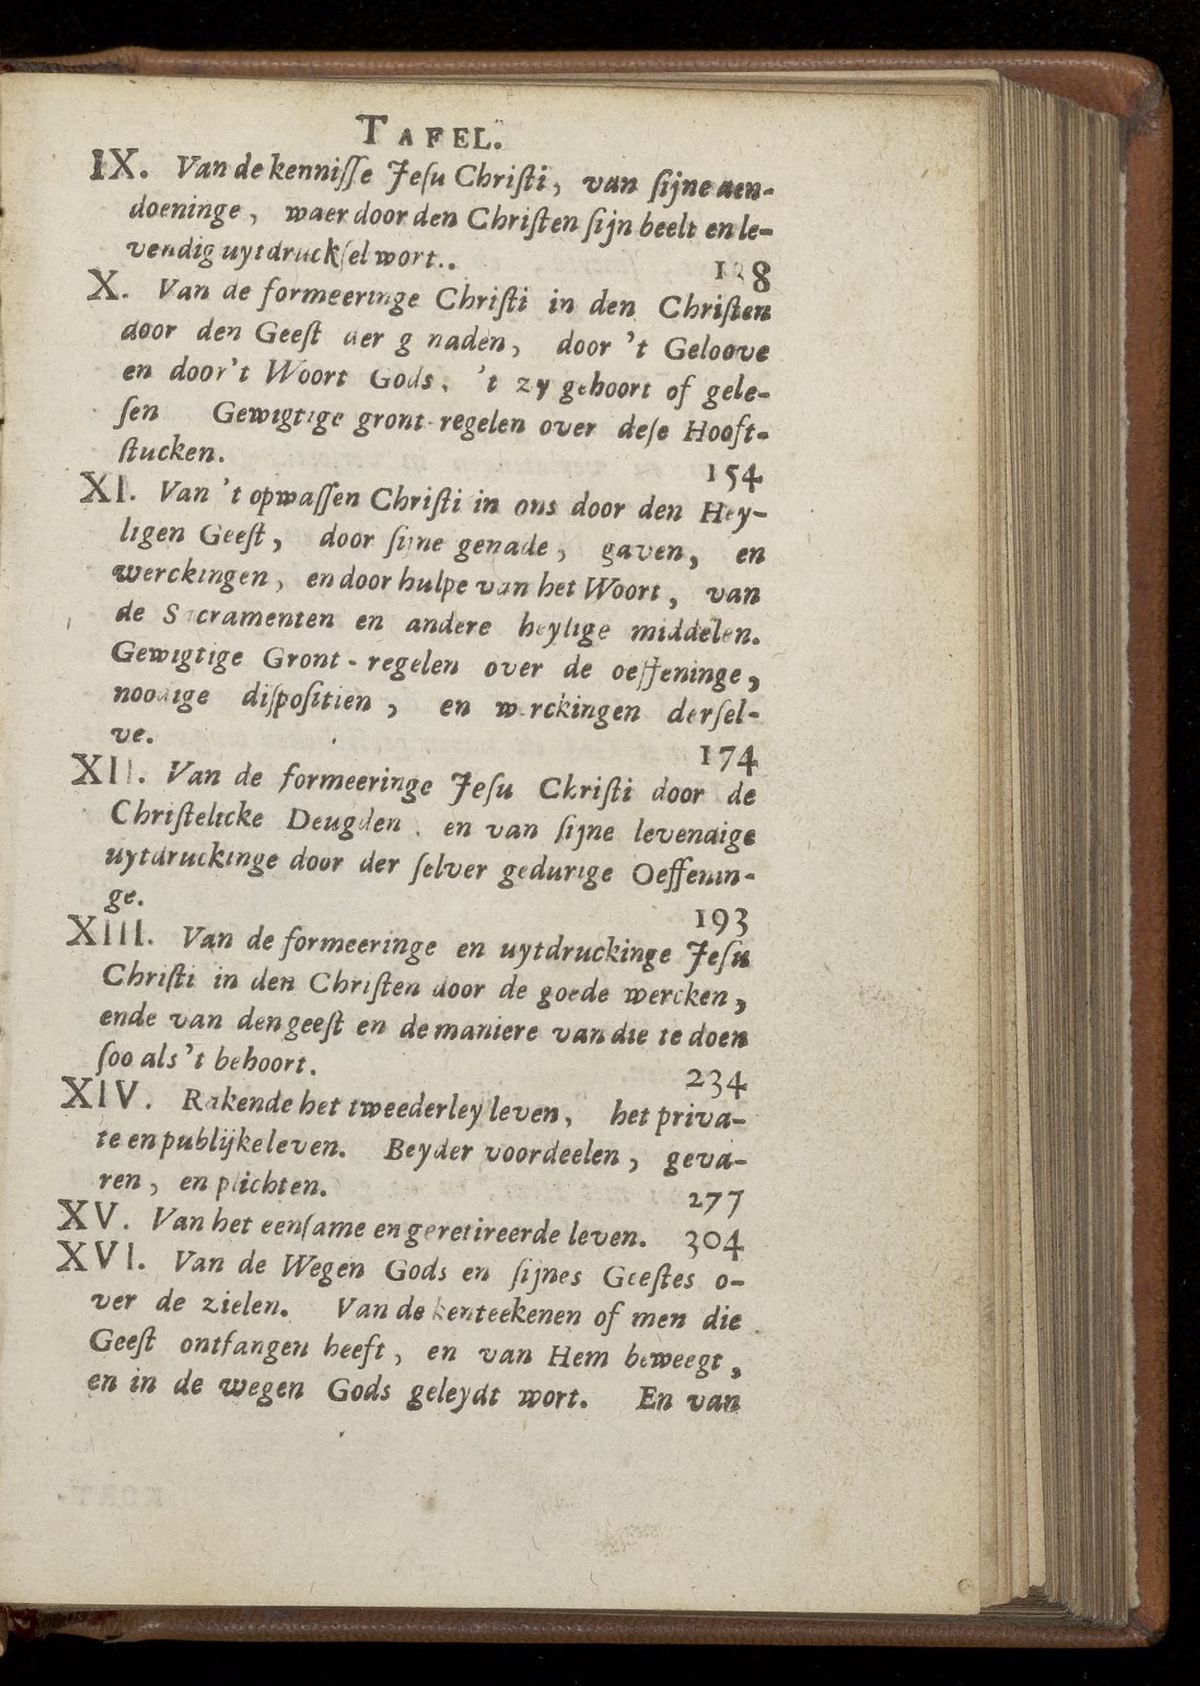 TAFEL.
IX. Van de kenniſſe Jeſu Chriſti, van ſijne aen-
doeninge, waer door den Chriſten ſijn beelt en le-
vendig uytdruckſel wort..
X. Van de formeeringe Chriſti in den Chriſten
door den Geeſt der g naden, door 't Geloove
en door 't Woort Gods, 't zy gehoort of gele-
ſen Gewigtige gront-regelen over deſe Hooft-
ſtucken. 154
XI. Van 't opwaſſen Chriſti in ons door den Hey-
ligen Geeſt, door ſijne genade, gaven, en
werckingen, en door hulpe van het Woort, van
de Sacramenten en andere heylige middelen.
Gewigtige Gront-regelen over de oeffeninge,
noodige diſpoſitien, en werckingen derſel-
ve. 174
XII. Van de formeeringe Jeſu Chriſti door de
Chriſtelicke Deugden, en van ſijne levendige
uytdruckinge door der ſelver gedurige Oeffenin-
ge. 193
XIII. Van de formeeringe en uytdruckinge Jeſu
Chriſti in den Chriſten door de goede wercken,
ende van den geeſt en de maniere van die te doen
ſoo als 't behoort. 234
XIV. Rakende het tweederley leven, het priva-
te en publijke leven. Beyder voordeelen, geva-
ren, en plichten. 277
XV. Van het eenſame en geretireerde leven. 304
XVI. Van de Wegen Gods en ſijnes Geeſtes o-
ver de zielen. Van de kenteekenen of men die
Geeſt ontfangen heeft, en van Hem beweegt,
en in de wegen Gods geleydt wort. En van